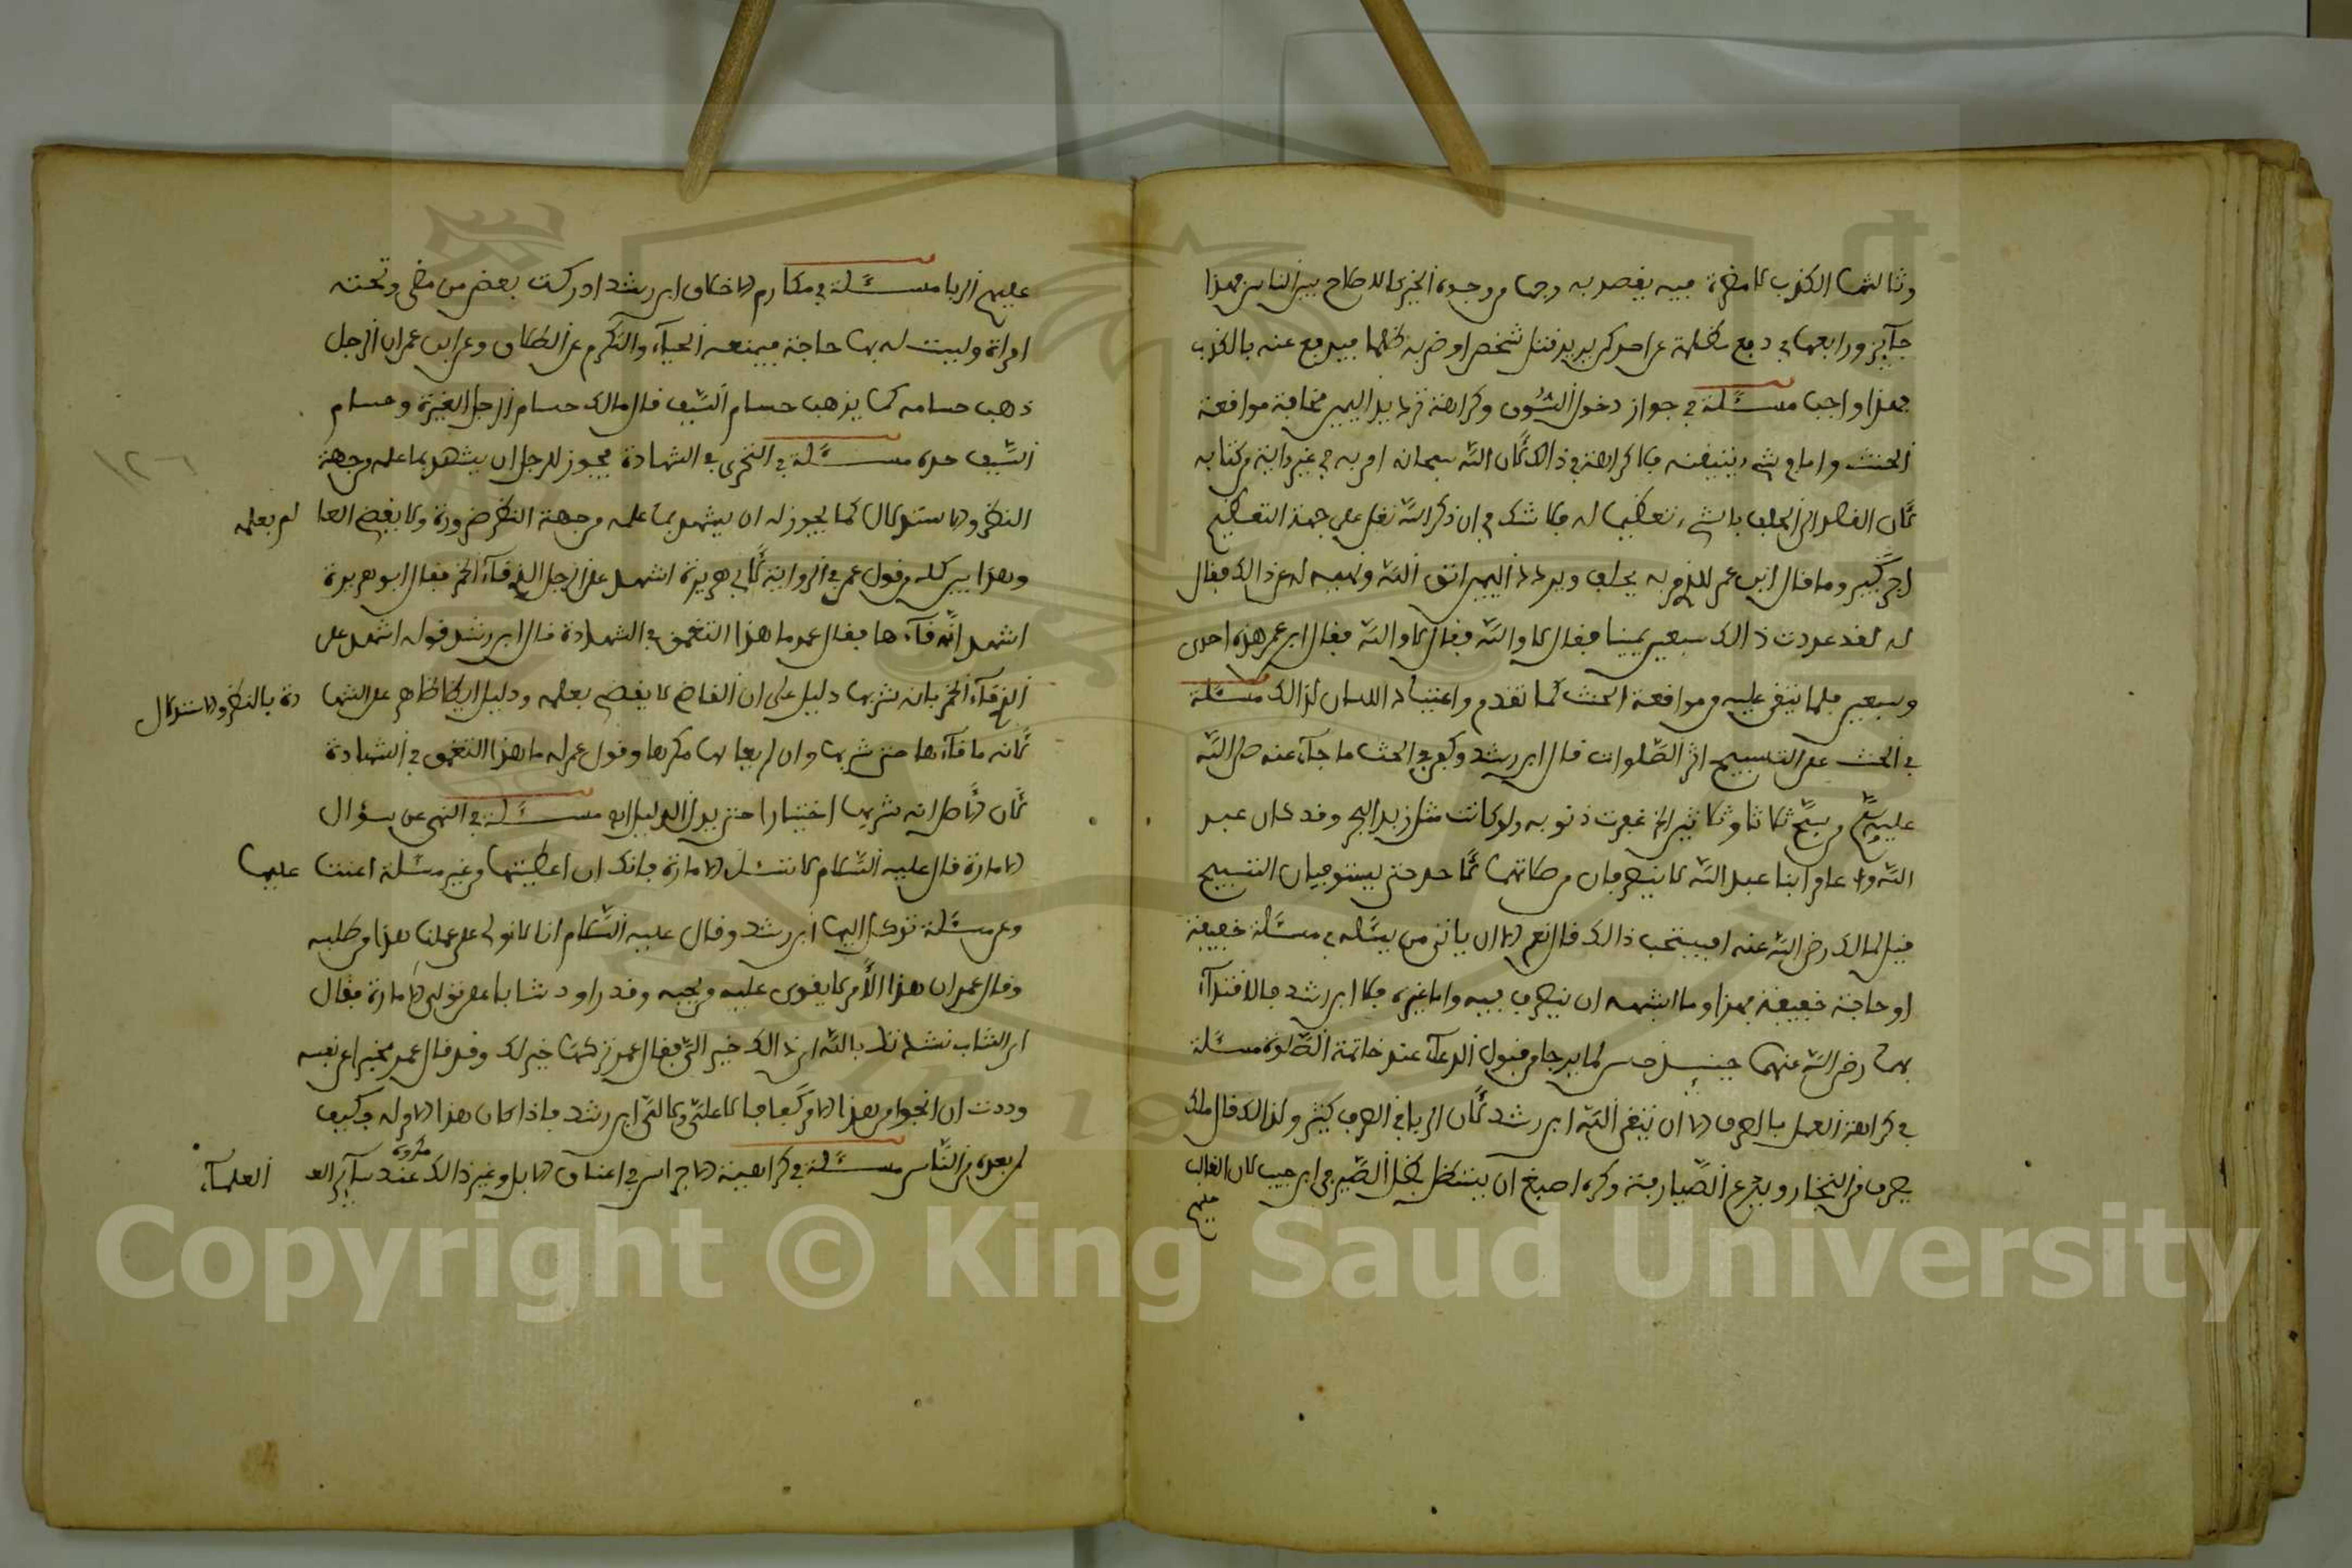 وثالثها الكذب لا مضرة فيه يقصد به وجها من وجوه الخير كالاصلاح بين الناس فهذا
جآيز ورابعها في دفع مظلمة عن احد كمن يريد قتل شخص او ضربه ظلما فيدفع عنه بالكذب
فهذا واجب مسئلة في جواز دخول السوق وكراهة ترديد اليمين مخافة موافعة
الحنث واما في شيء يتيقنه فلا كراهة في ذالك لأن الله سبحانه امر به في غير داية من كتابه
لأن القصد الى الحلف بالشيء تعظيما له فلا شك في ان ذكر الله تعلى على جهة التعظيم
اجر كبير وما قال ابن عمر للذي مر به يحلف ويردد اليمين اتق الله ونهيه له عن ذالك فقال
له لقد عددت ذالك سبعين يمينا فقال لا والله فقال لا والله فقال ابن عمر هذه احدى
وسبعين فلما يتقى عليه من موافعة الحنث كما تقدم واعتياد اللسان لذالك مسئلة
في الحث على التسبيح اثر الصلوات قال ابن رشد وكفى في الحث ما جآء عنه صلى الله
عليه وسلم من سبح ثلاثا وثلاثين الخ غفرت ذنوبه ولو كانت مثل زبد البحر وقد كان عبد
الله وا عامر ابنا عبد الله لا ينصرفان من صلاتهما لأحد حتى يستوفيان التسبيح
فيل لمالك رضي الله عنه افيستحب ذالك قال نعم الا ان ياتي من يسئله في مسئلة خفيفة
او حاجة خفيفة فهذا وما اشبهه ان ينصرف فيه واما غيره فلا ابن رشد فالاقتدآء
بهما رضي الله عنهما حسن لما يرجا من قبول الدعآء عند خاتمة الصلوة مسئلة
في كراهة العمل بالصرف الا ان يتقي الله ابن رشد لأن الربا في الصرف كثير ولذالك قال ملك
يصرف من التجار ويدع الصيارفة وكره اصبغ ان يستظل بظل الصيرفي ابن حبيب لان الغالب
عليهم
عليهم الربا مسئلة في مكارم الاخلاق ابن رشد ادركت بعض من مضى وتحته
امراة وليست له بها حاجة فيمنعه الحيآء والتكرم عن الطلاق وعن ابن عمران الرجل
ذهب حسامه كما يذهب حسام السيف قال مالك حسام الرجل الغيرة وحسام
السيف حده مسئلة في التحرى في الشهادة يجوز للرجل ان يشهد بما علمه من جهة
النظر والاستدلال كما يجوز له ان يشهد بما علمه من جهة النظر ضرورة ولا يقضي القا لم بعلمه
وهذا بين كله من قول عمر في الرواية لأبي هريرة اشهد على الرجل الذي قآء الخمر فقال ابو هريرة
اشهد انه قآءها فقال عمر ما هذا التعمق في الشهادة قال ابن رشد قوله اشهد على
الذي قآء الخمر بانه شربها دليل على ان القاضي لا يقضي بعلمه ودليل ايضا ظاهر على الشها دة بالنظر والاستدلال
لأنه ما قآءها حتى شربها وان لم يعاين لها مكرها وقول عمر له ما هذا التعمق في الشهادة
لأن الأصل انه شربها اختيارا حتى يدل الدليل اه مسئلة في النهي عن سؤال
الامارة قال عليه السلام لا تسئل الامارة فانك ان اعطيتها من غير مسئلة اعنت عليها
وعن مسئلة توكل اليها ابن رشد وقال عليه السلام انا لا نولي على عملنا هذا من طلبه
وقال عمر ان هذا الأمر لا يقوى عليه من يحبه وقد راود شابا على توليه الامارة فقال
ابن الشاب نشدتك بالله اي ذالك خير الي فقال عمر تركها خير لك وقد قال عمر مخبرا عن نفسه
وددت ان انجوا من هذا الامر كفافا لا علي ولا لي ابن رشد فاذا كان هذا الامر له فكيف
لمن بعده من الناس مسئلة في كراهية الاجراس في اعناق الابل وغير ذالك مكروه عند سآير العلمآء
١٢٦